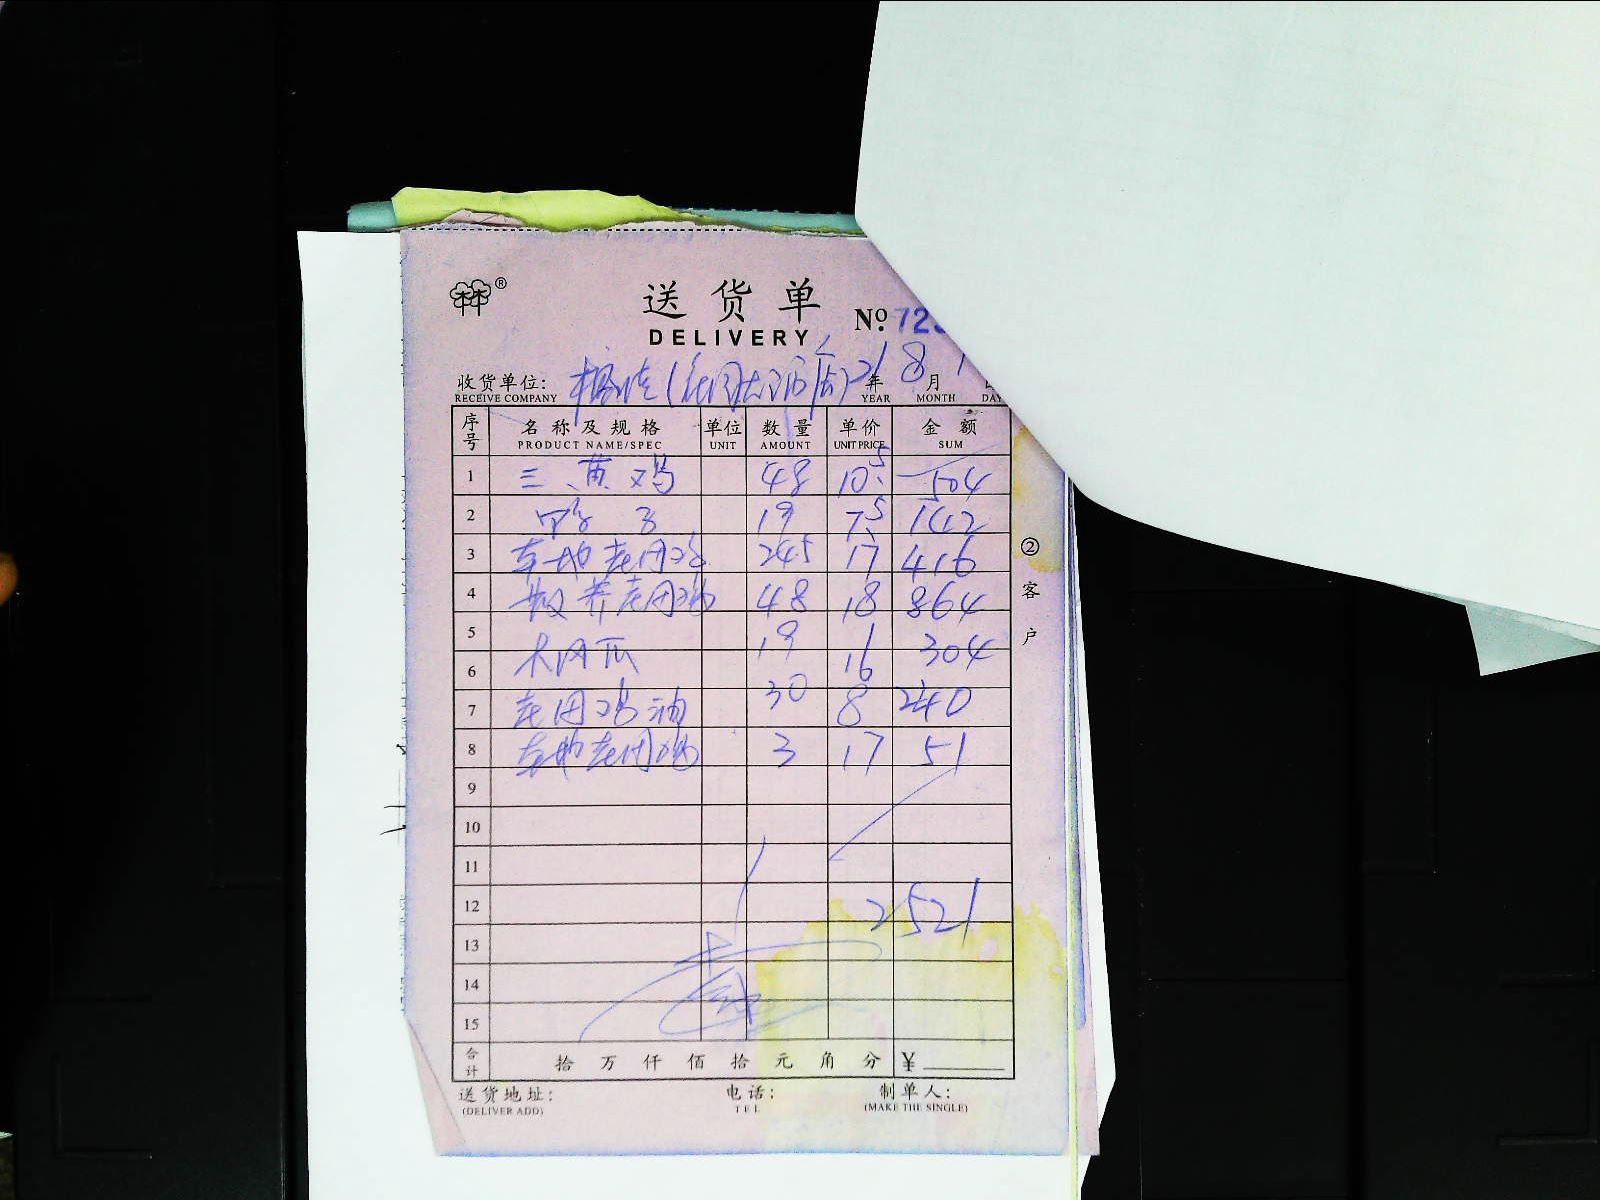 ®
送货单
DELIVERY
№ 72
收货单位: 21 年 8 月 1
RECEIVE COMPANY YEAR MONTH DAY
序号 名称及规格 单位 数量 单价 金额
PRODUCT NAME/SPEC UNIT AMOUNT UNIT PRICE SUM
1 三黄鸡 48 10.5 504
2 鸭子 19 7.5 142
3 草地老母鸡 24.5 17 416
4 散养老母鸡 48 18 864
5 19 16 304
6
7 老母鸡油 30 8 240
8 草地老母鸡 3 17 51
9
10
11
12 2521
13
14
15
合计 拾 万 仟 佰 拾 元 角 分 ¥
送货地址: 电话: 制单人:
(DELIVER ADD) TEL (MAKE THE SINGLE)
②客户